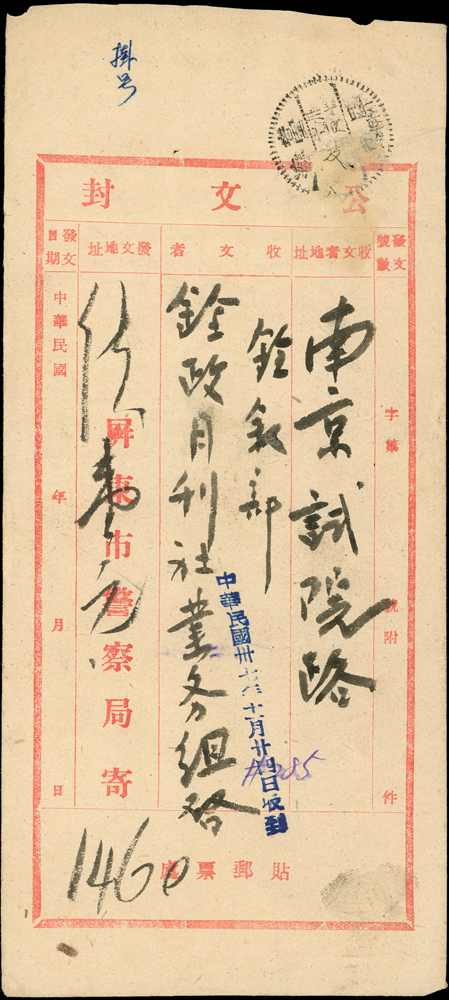 掛号
公文封
發文號數
收文者地址
收文者
發文地址
發文日期
字第 號附 件
南京試院路
銓敘部
銓政月刊社業务組啓
中華民國卅七年十一月廿四日收到
屏東市警察局寄
中華民國 年 月 日
貼郵票處
1460